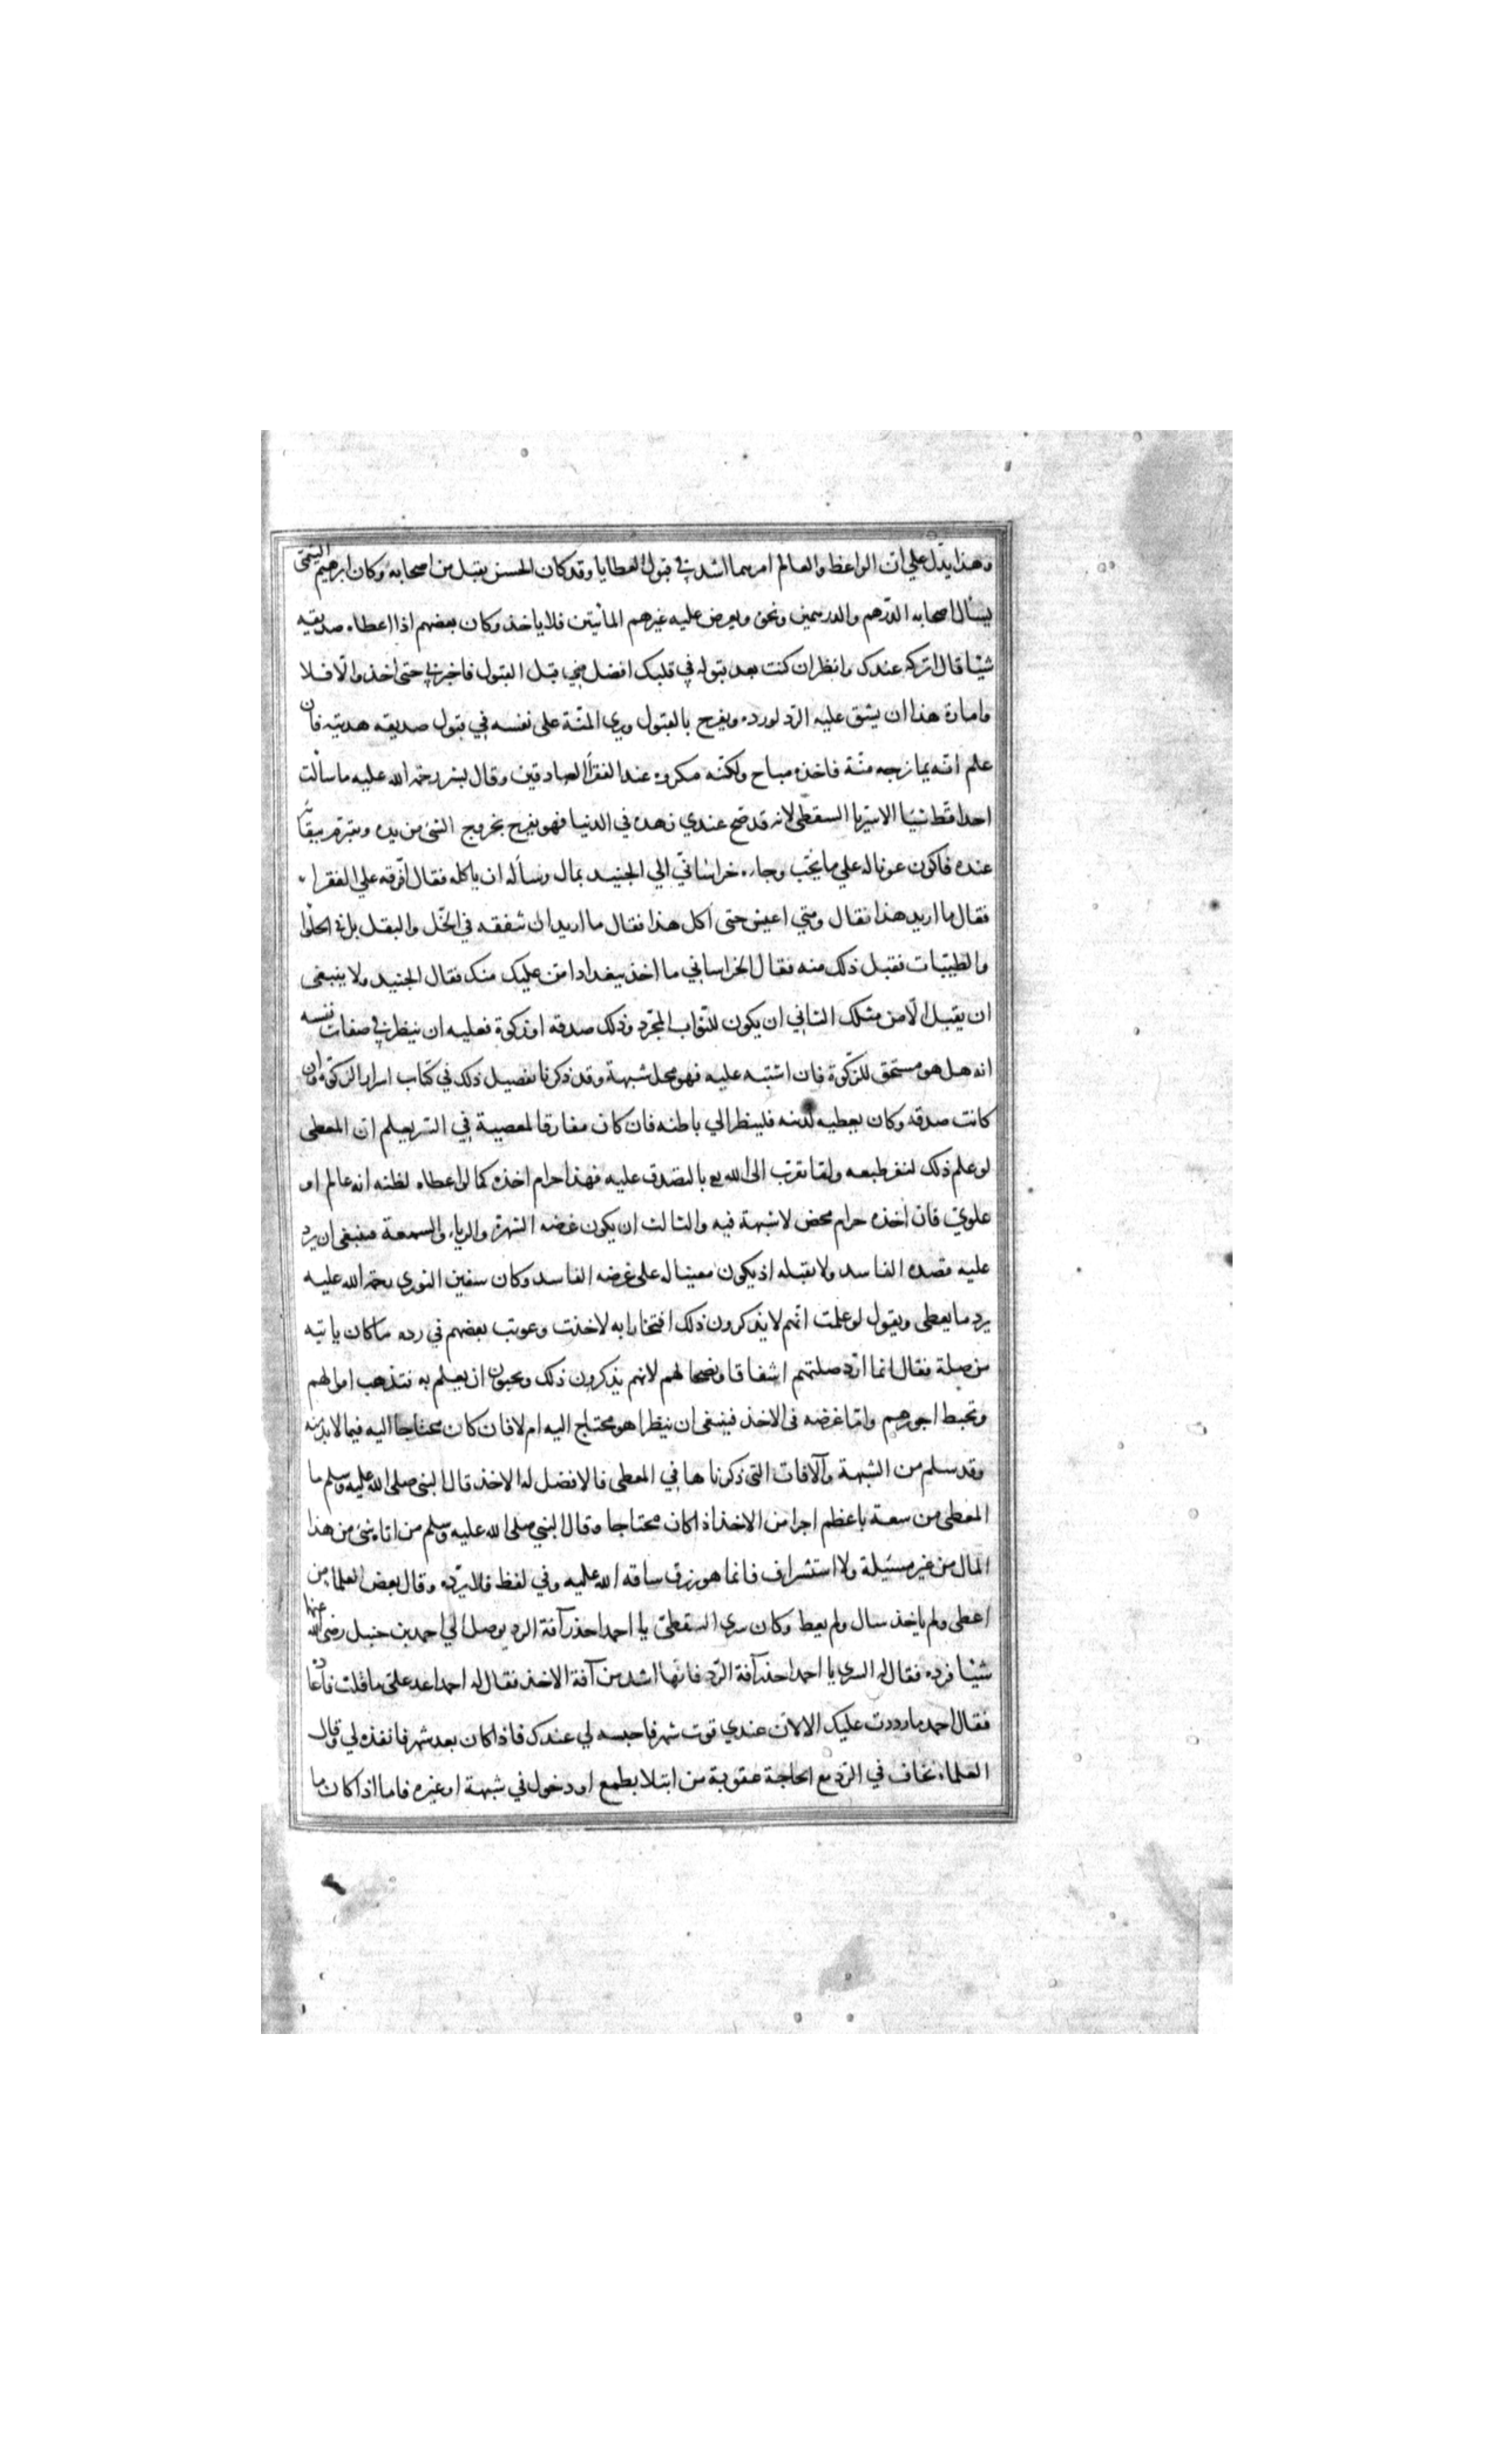 وهذا يدّل علي انّ الواعظ والعالم امرهما اشد في قبول العطايا وقد كان الحسن يقبل من اصحابه وكان ابرهيم التيمّى
يسأل اصحابه الدّرهم والدرهمين ونحوه ويعرض عليه غيرهم المأتين فلا ياخذ وكان بعضهم اذا اعطاه صديقه
شيًا قال اتركه عندك وانظر ان كنت بعد قبوله في قلبك افضل مني قبل القبول فاخبرني حتى اخذ والّا فلا
وامارة هذا ان يشق عليه الرّد لورده ويفرح بالقبول ويرى المنّة على نفسه في قبول صديقه هديته فان
علم انّه يمازجه منّة فاخذه مباح ولكنّه مكروه عند الفقرأ الصادقين وقال بشر رحمة الله عليه ما سألت
احدا قط شيًا الا سريا السقطّى لانه قد صّح عندي زهده في الدنيا فهو يفرح بخروج الشئ من يده ويتبرّم ببقًاء
عنده فاكون عونا له علي ما يحّب وجاء خراسانّي الي الجنيد بمال وسأله ان ياكله فقال افّرقه علي الفقراء
فقال ما اريد هذا فقال ومتي اعيش حتى آكل هذا فقال ما اريد ان تنفقه في الخّل والبقل بل في الحلوا
والطيّبات فقبل ذلك منه فقال الخراساني ما اخذ ببغداد امنّ عليك منك فقال الجنيد ولا ينبغى
ان يقبل الّا من مثلك الثاني ان يكون للثّواب المجّرد وذلك صدقه او زكوة فعليه ان ينظر في صفات نفسه
انه هل هو مستحق للزّكوة فان اشتبه عليه فهو محل شبهة وقد ذكرنا تفصيل ذلك في كتاب اسرار الزكوة وان
كانت صدقه وكان يعطيه لدينه فلينظر الي باطنه فان كان مفارقا لمعصية في السّر يعلم ان المعطى
لو علم ذلك لنفر طبعه ولما تقرب الى الله بع بالتصدق عليه فهذا حرام اخذه كما لو اعطاه لظنه انه عالم او
علوي فان اخذه حرام محض لا شبهة فيه والثالث ان يكون غرضه الشهرة والرياء والسمعة فينبغى ان يرد
عليه قصده الفاسد ولا يقبله اذ يكون معينا له على غرضه الفاسد وكان سفين الثوري رحمة الله عليه
يرد ما يعطى ويقول لو علمت انّهم لا يذكرون ذلك افتخارا به لاخذت وعوتب بعضهم في رده ما كان ياتيه
من صلة فقال انما ارّد صلتهم اشفاقا ونصحا لهم لانهم يذكرون ذلك ويحبون ان يعلم به فتذهب اموالهم
وتحبط اجورهم وامّا غرضه فى الاخذ فينبغى ان ينظر اهو محتاج اليه ام لا فان كان محتاجا اليه فيما لا بدّ منه
وقد سلم من الشبهة والآفات التى ذكرناها في المعطى فالافضل له الاخذ قال النبى صلى الله عليه وسلم ما
المعطى من سعة باعظم اجرا من الاخذ اذا كان محتاجا وقال النبي صلى الله عليه وسلم من اتاه شئ من هذا
المال من غير مسئيلة ولا استشراف فانما هو رزق ساقه الله عليه وفي لفظ فلا يرّده وقال بعض العلما من
اعطى ولم ياخذ سال ولم يعط وكان سري السقطىّ يا احمد احذر آفة الرد يوصل الي احمد بن حنبل رضى الله عنهما
شيًا فرده فقال له السري يا احمد احذر آفة الرّد فانّها اشد من آفة الاخذ فقال له احمد اعد علىّ ما قلت فاعاده
فقال احمد ما رددت عليك الا لانّ عندي قوت شهر فاحبسه لي عندك فاذا كان بعد شهر فانفذه لي وقال
العلماء نخاف في الرّد مع الحاجة عقوبة من ابتلا بطمع او دخول في شبهة او غيره فاما اذا كان ما